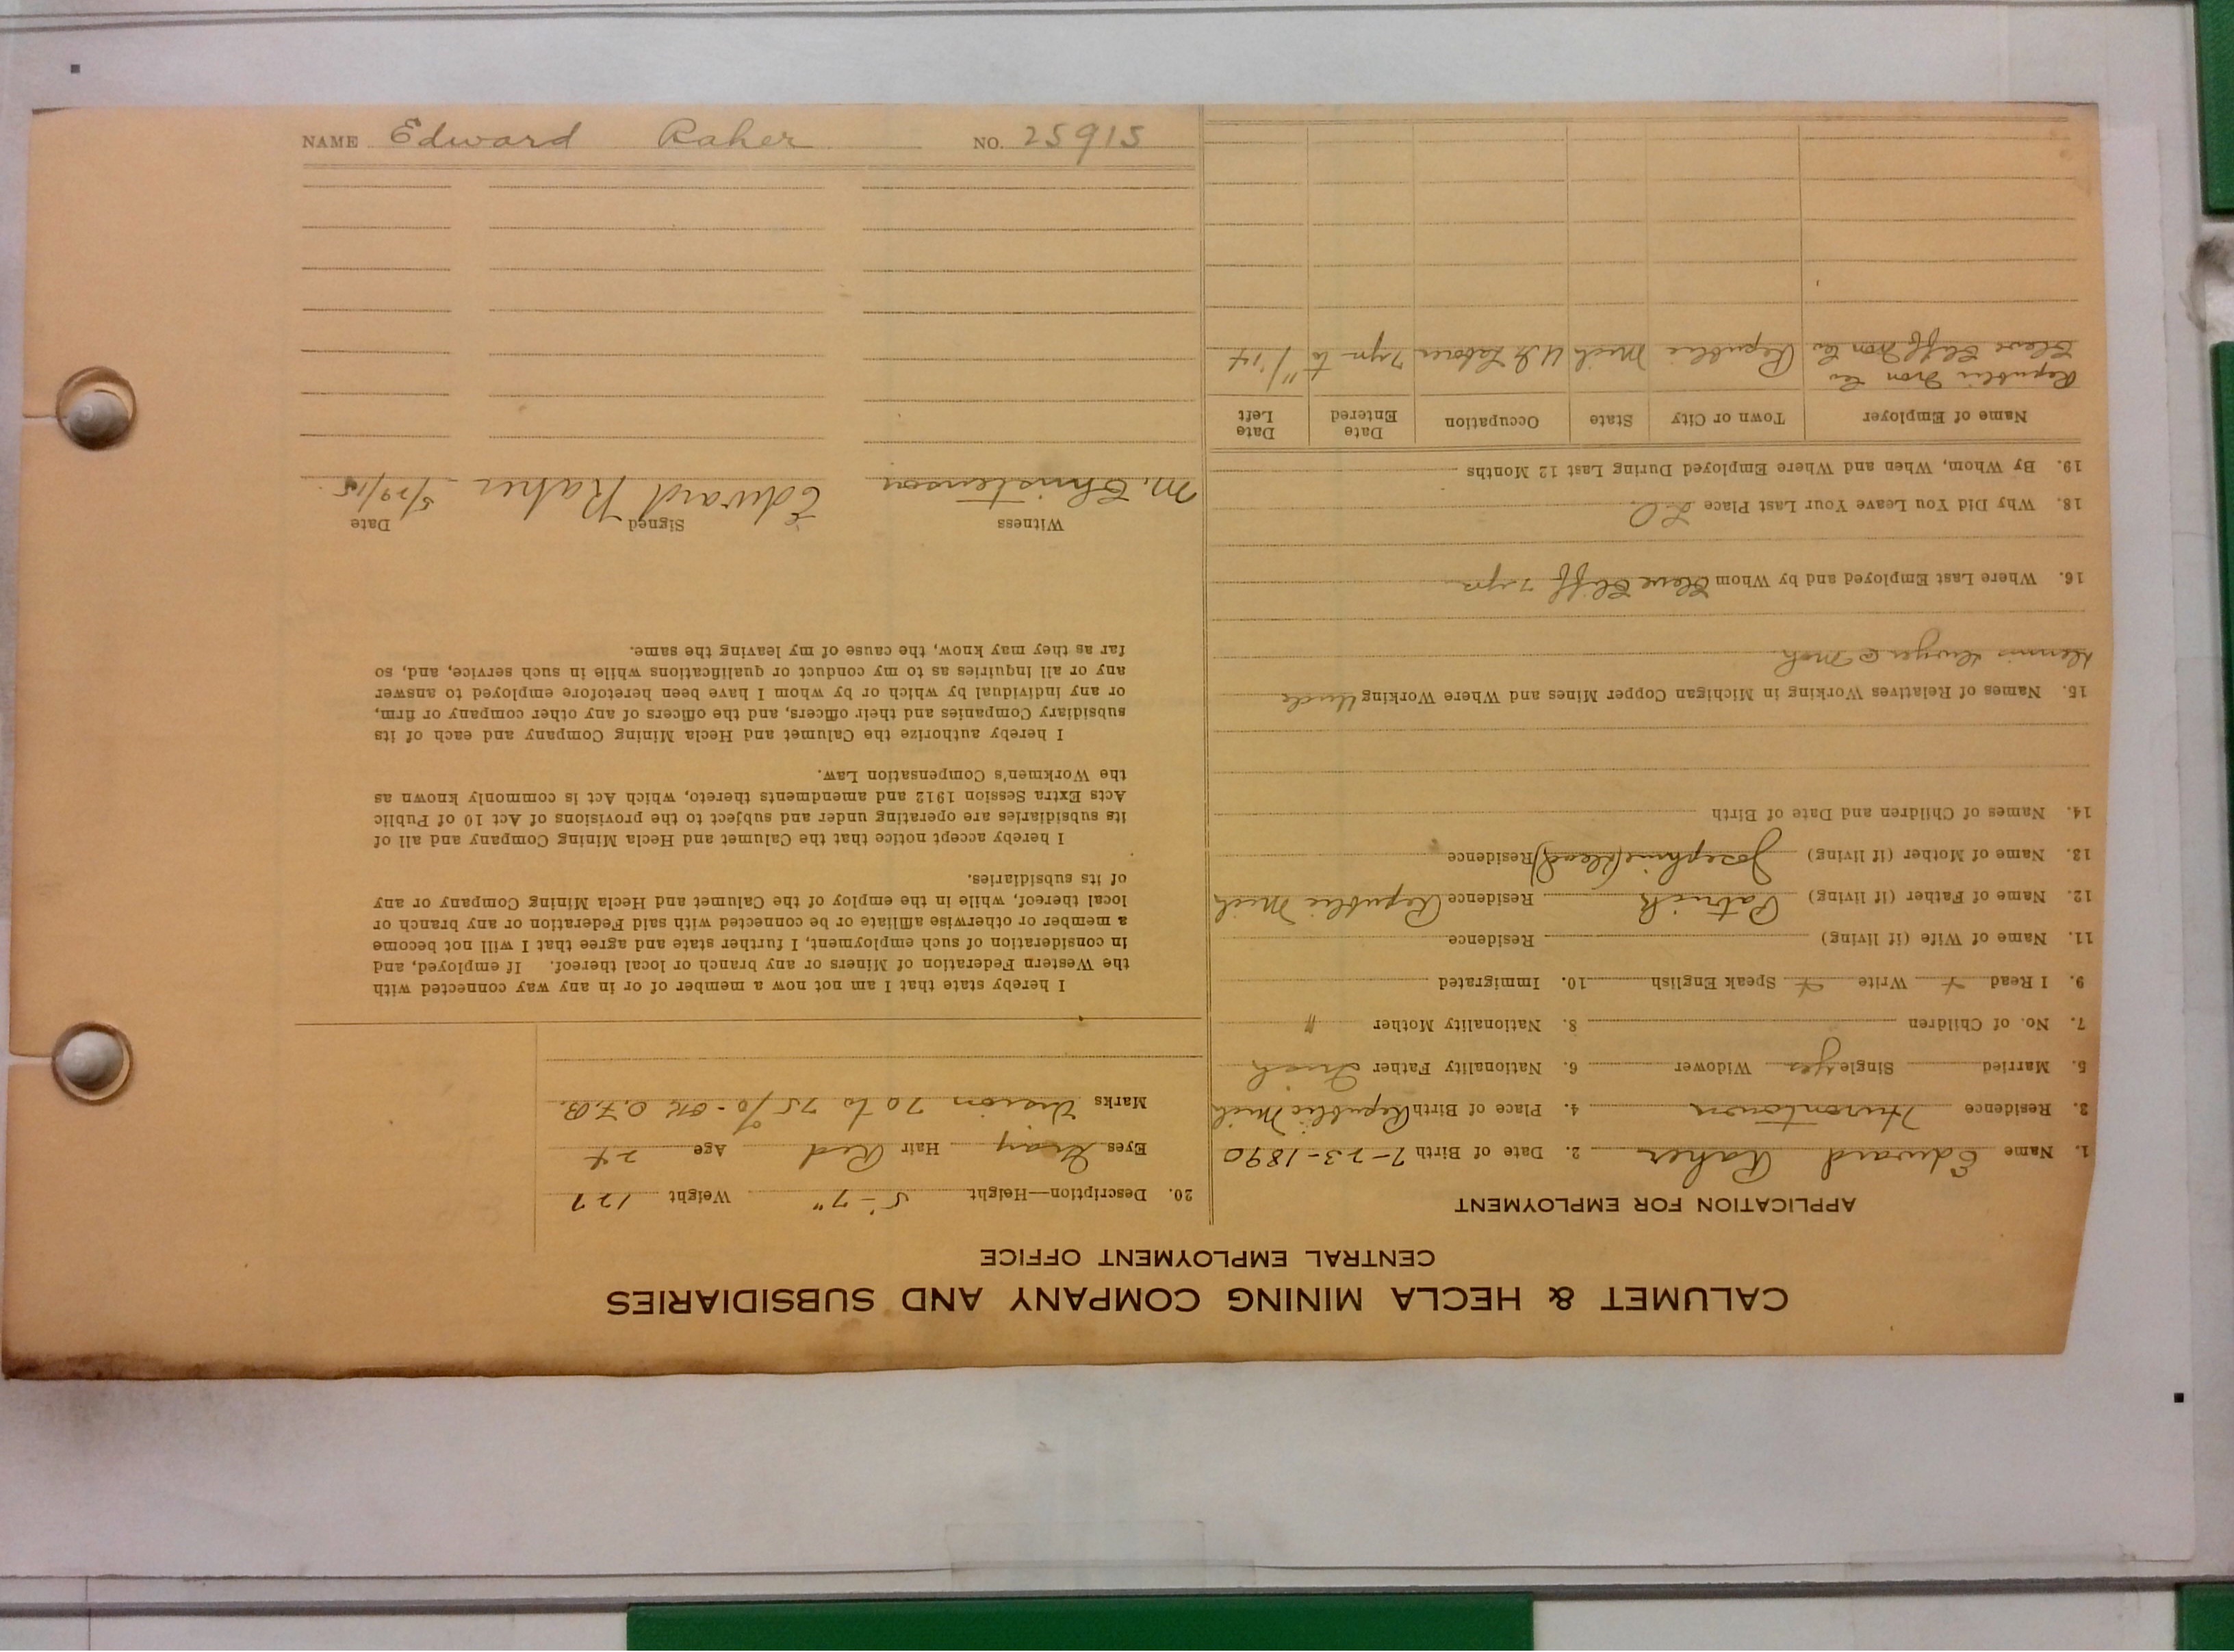 CALUMET & HECLA MINING COMPANY AND SUBSIDIARIES
CENTRAL EMPLOYMENT OFFICE
APPLICATION FOR EMPLOYMENT
1. Name Edward Raher 2. Date of Birth 7-23-1890
3. Residence Hurontown 4. Place of Birth Republic Mich
5. Married Single yes Widower 6. Nationality Father Irish
7. No. of Children 8. Nationality Mother "
9. I Read + Write + Speak English 10. Immigrated
11. Name of Wife (if living) Residence
12. Name of Father (if living) Patrick Residence Republic Mich
13. Name of Mother (if living) Josephine (Dead) Residence
14. Names of Children and Date of Birth
15. Names of Relatives Working in Michigan Copper Mines and Where Working Uncle
Dennis Dwyer @ Moh
16. Where Last Employed and by Whom Cleve Cliff 7 yrs
18. Why Did You Leave Your Last Place L.O
19. By Whom, When and Where Employed During Last 12 Months
Name of Employer Town or City State Occupation Date Entered Date Left
Republic Iron Co
Cleve Cliff Iron Co Republic Mich U.G Laborer 7 yrs to 11/14
20. Description—Height 5'-7" Weight 127
Eyes Gray Hair Red Age 24
Marks Vision 70 to 75% - OK O.F.B.
I hereby state that I am not now a member of or in any way connected with
the Western Federation of Miners or any branch or local thereof. If employed, and
in consideration of such employment, I further state and agree that I will not become
a member or otherwise affiliate or be connected with said Federation or any branch or
local thereof, while in the employ of the Calumet and Hecla Mining Company or any
of its subsidiaries.
I hereby accept notice that the Calumet and Hecla Mining Company and all of
its subsidiaries are operating under and subject to the provisions of Act 10 of Public
Acts Extra Session 1912 and amendments thereto, which Act is commonly known as
the Workmen's Compensation Law.
I hereby authorize the Calumet and Hecla Mining Company and each of its
subsidiary Companies and their officers, and the officers of any other company or firm,
or any individual by which or by whom I have been heretofore employed to answer
any or all inquiries as to my conduct or qualifications while in such service, and, so
far as they may know, the cause of my leaving the same.
Witness Signed Date
M. Christenson Edward Raher 5/29/15
NAME Edward Raher NO. 25915